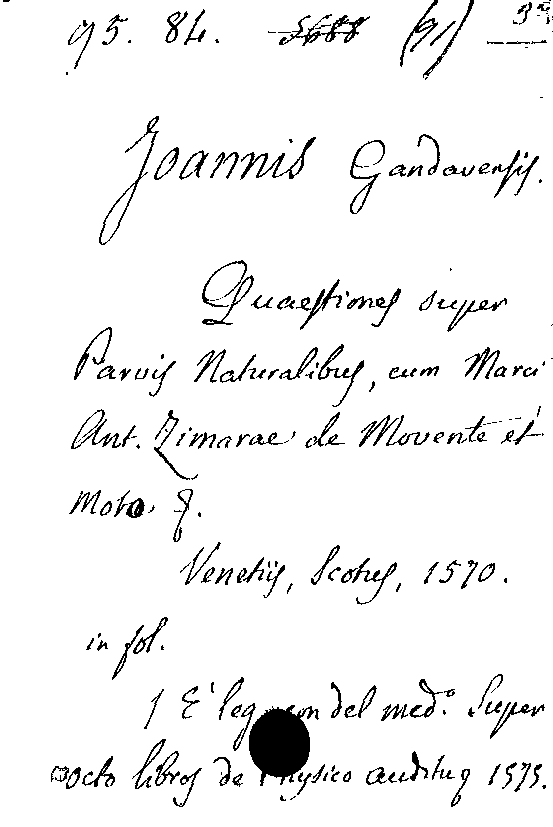 95. 84. 5688 (91) 3
Joannis Gandavensis.
Quaestiones super
Parvis Naturalibus, cum Marci
Ant. Zimarae de Movente et
Moto. &.
Venetiis, Scotus, 1570.
in fol.
È leg con del med.º Super
octo libros de Physico auditu 1575.